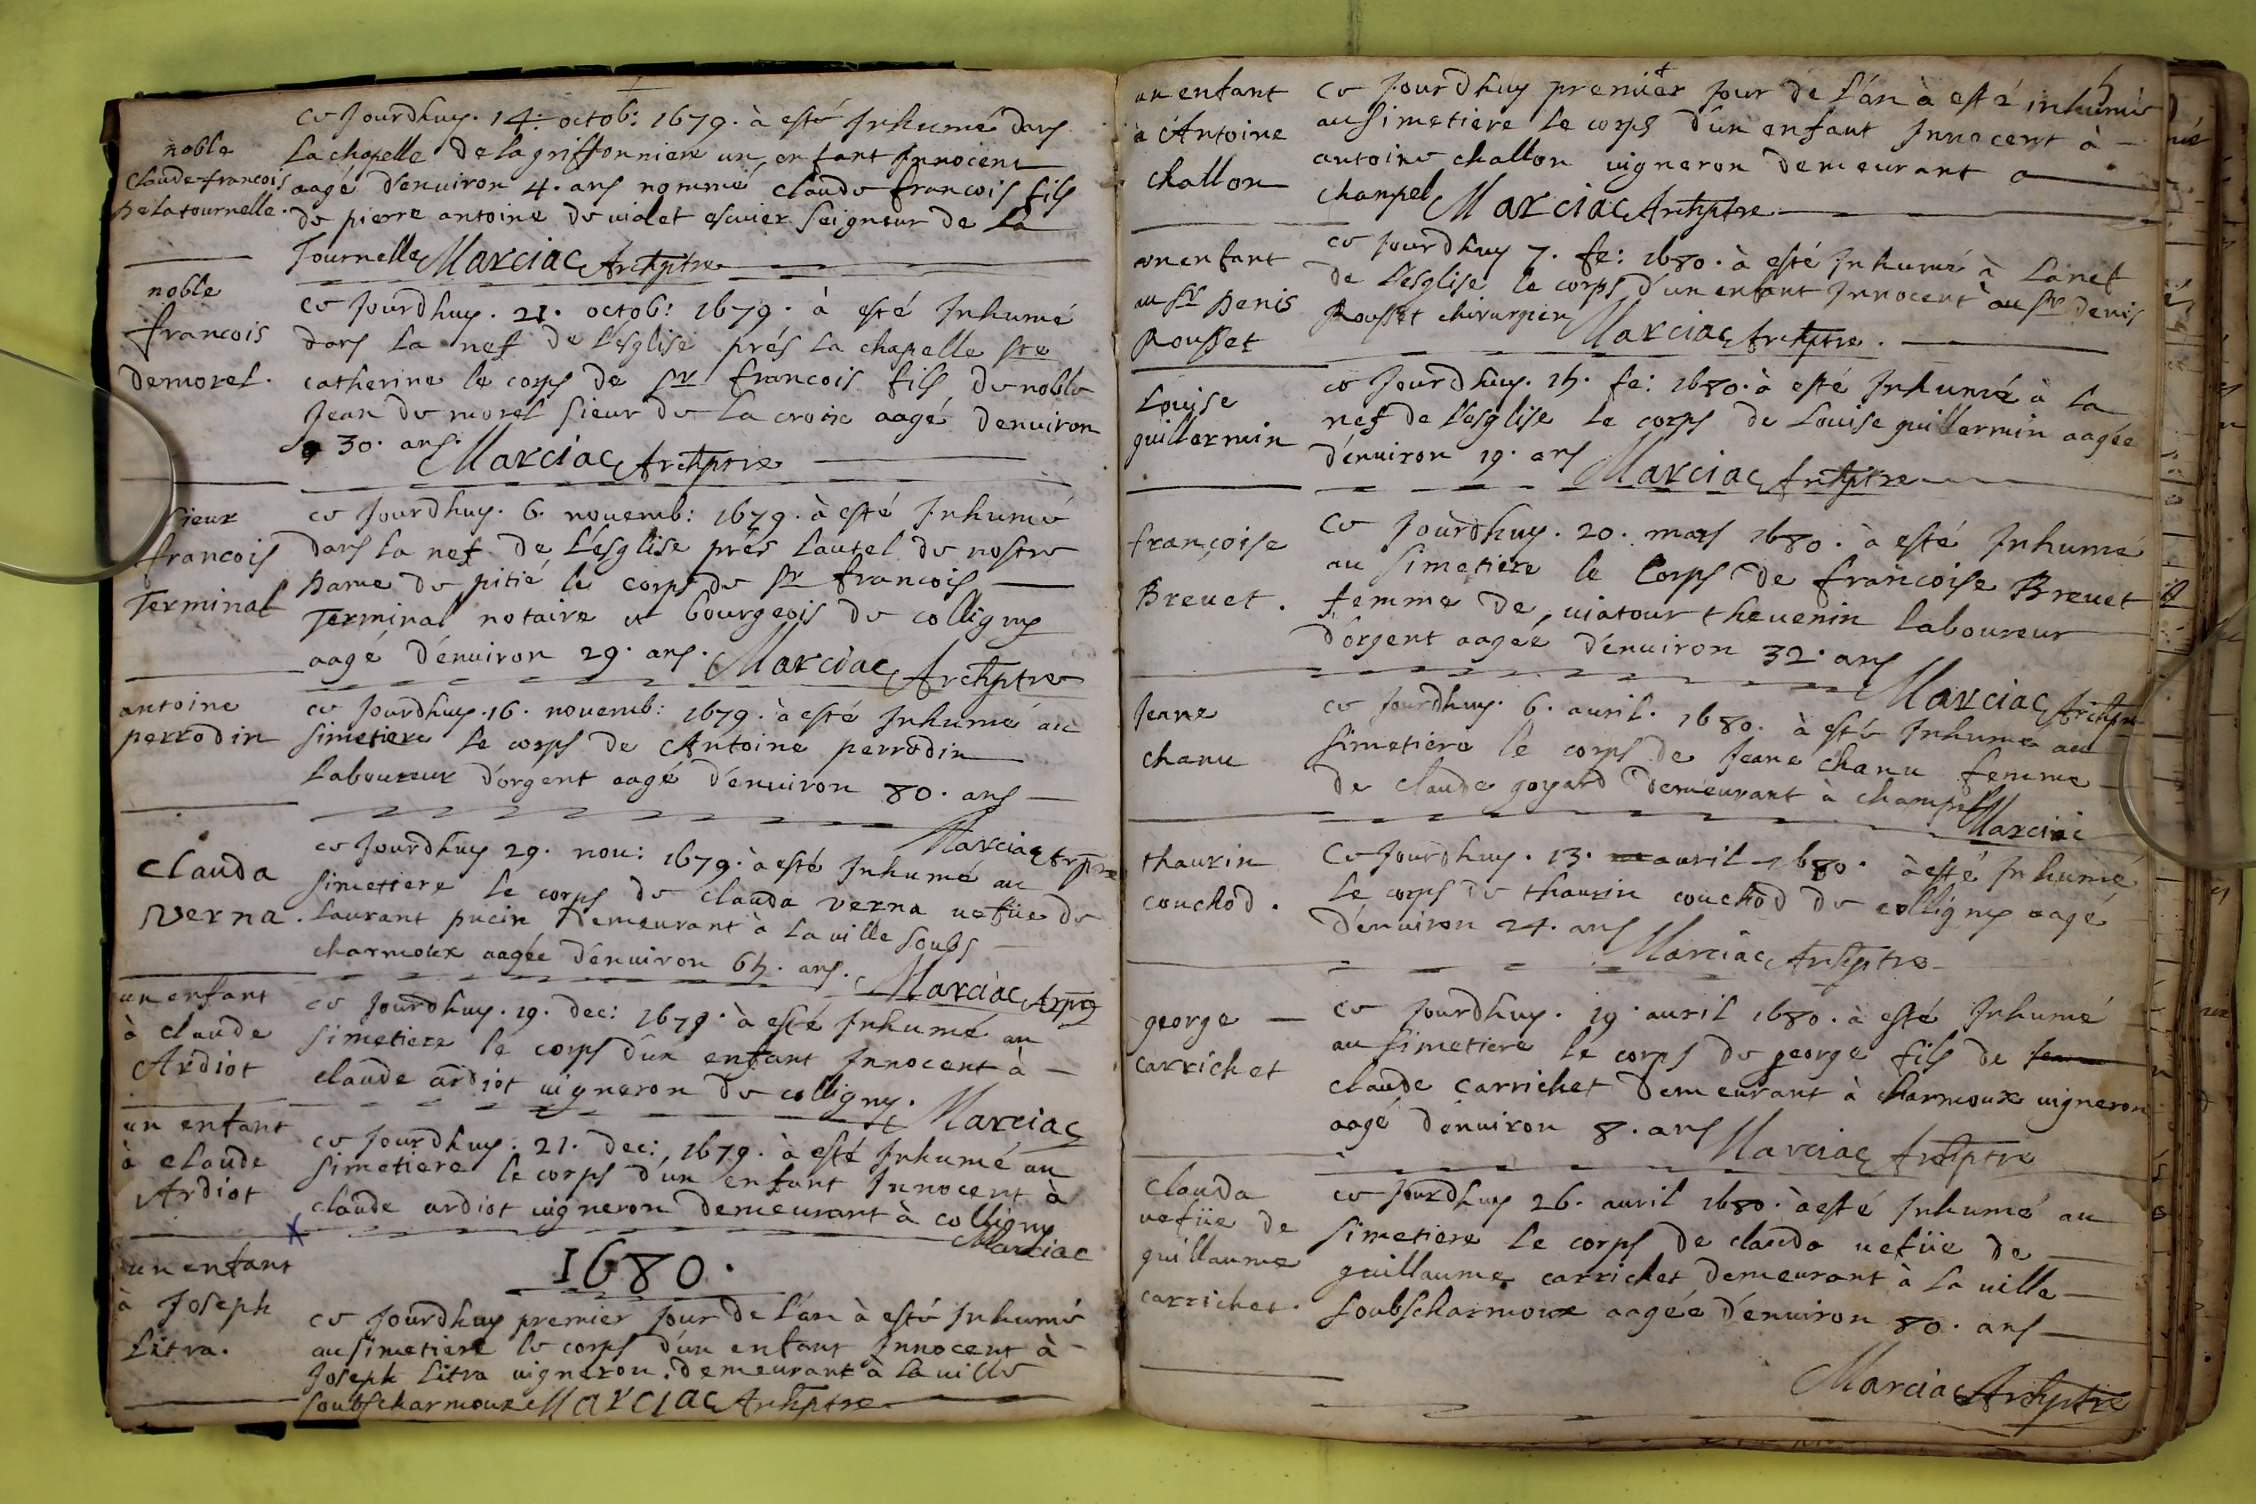 noble
Claude francois
De la tournelle.
ce Jourdhuy. 14. octob: 1679. à esté Inhumé dans
La chapelle de la griffonniere un enfant Innocent
aagé d'enuiron 4. ans nommé claude francois fils
de pierre antoine de uialet escuier seigneur de La
Tournelle Marciac Archptre
noble
francois
demorel.
ce Jourdhuy. 21. octob: 1679. à esté Inhumé
dans La nef de L'esglise prés La chapelle ste
catherine le corps de Sr francois fils de noble
Jean de morel sieur de la croix aagé denuiron
30. ans. Marciac Archptre
sieur
francois
Terminal
ce Jourdhuy. 6. nouemb: 1679. à esté Inhumé
dans La nef de L'esglise prés Lautel de nostre
Dame de pitié le corps de Sr francois
Terminal notaire et bourgeois de colligny
aagé d'enuiron 29. ans. Marciac Archptre
antoine
perrodin
ce Jourdhuy. 16. nouemb: 1679. à esté Inhumé au
simetiere le corps de Antoine perrodin
Laboureur d'orgent aagé d'enuiron 80. ans
Marciac Arptre
Clauda
Verna.
ce Jourdhuy 29. nou: 1679. à esté Inhumé au
simetiere le corps de clauda verna uefüe de
Laurant pucin demeurant à La uille soubs
charmoux aagée d'enuiron 65. ans. Marciac Arptre
un enfant
à claude
Ardiot
ce Jourdhuy. 19. dec: 1679. à esté Inhumé au
simetiere le corps d'un enfant Innocent à
claude ardiot uigneron de colligny.
Marciac
un enfant
à claude
Ardiot
ce Jourdhuy. 21. dec: 1679. à esté Inhumé au
simetiere le corps d'un enfant Innocent à
claude ardiot uigneron demeurant à colligny
Marciac
1680.
un enfant
à Joseph
Litra.
ce Jourdhuy premier Jour de L'an à esté Inhumé
au simetiere le corps d'un enfant Innocent à
Joseph Litra uigneron demeurant à La uille
soubscharmoux Marciac Archptre
un enfant
à Antoine
challon
ce Jourdhuy premier Jour de L'an à esté inhumé
au simetiere le corps d'un enfant Innocent à
antoine challon uigneron demeurant a
chanpel Marciac Archptre
un enfant
au Sr Denis
Rousset
ce Jourdhuy 7. fe: 1680. à esté Inhumé à La nef
de L'esglise le corps d'un enfant Innocent au Sr denis
Rousset chirurgien Marciac Archptre.
Louise
guillermin
ce Jourdhuy. 15. fe: 1680. à esté Inhumé à La
nef de L'esglise le corps de Louise guillermin aagée
d'enuiron 19. ans Marciac Archptre
françoise
Breuet.
ce Jourdhuy. 20. mars 1680. à esté Inhumé
au simetiere le corps de francoise Breuet
femme de uiatour theuenin laboureur
d'orgent aagée d'enuiron 32. ans
Marciac Archptre
Jeane
chanu
ce Jourdhuy. 6. auril. 1680. à esté Inhumé au
simetiere le corps de Jeane chanu femme
de claude goyard demeurant à champel
Marciac
thaurin
couchod.
ce Jourdhuy. 13. auril 1680. à esté Inhumé
le corps de thaurin couchod de colligny aagé
d'enuiron 24. ans Marciac Archptre
george
carrichet
ce Jourdhuy. 19. auril 1680. à esté Inhumé
au simetiere le corps de george fils de
claude carrichet demeurant à charmoux uigneron
aagé d'enuiron 8. ans Marciac Archptre
clauda
uefüe de
guillaume
carrichet.
ce Jourdhuy 26. auril 1680. à esté Inhumé au
simetiere le corps de clauda uefüe de
guillaume carrichet demeurant à La uille
soubscharmoux aagée d'enuiron 80. ans
Marciac Archptre